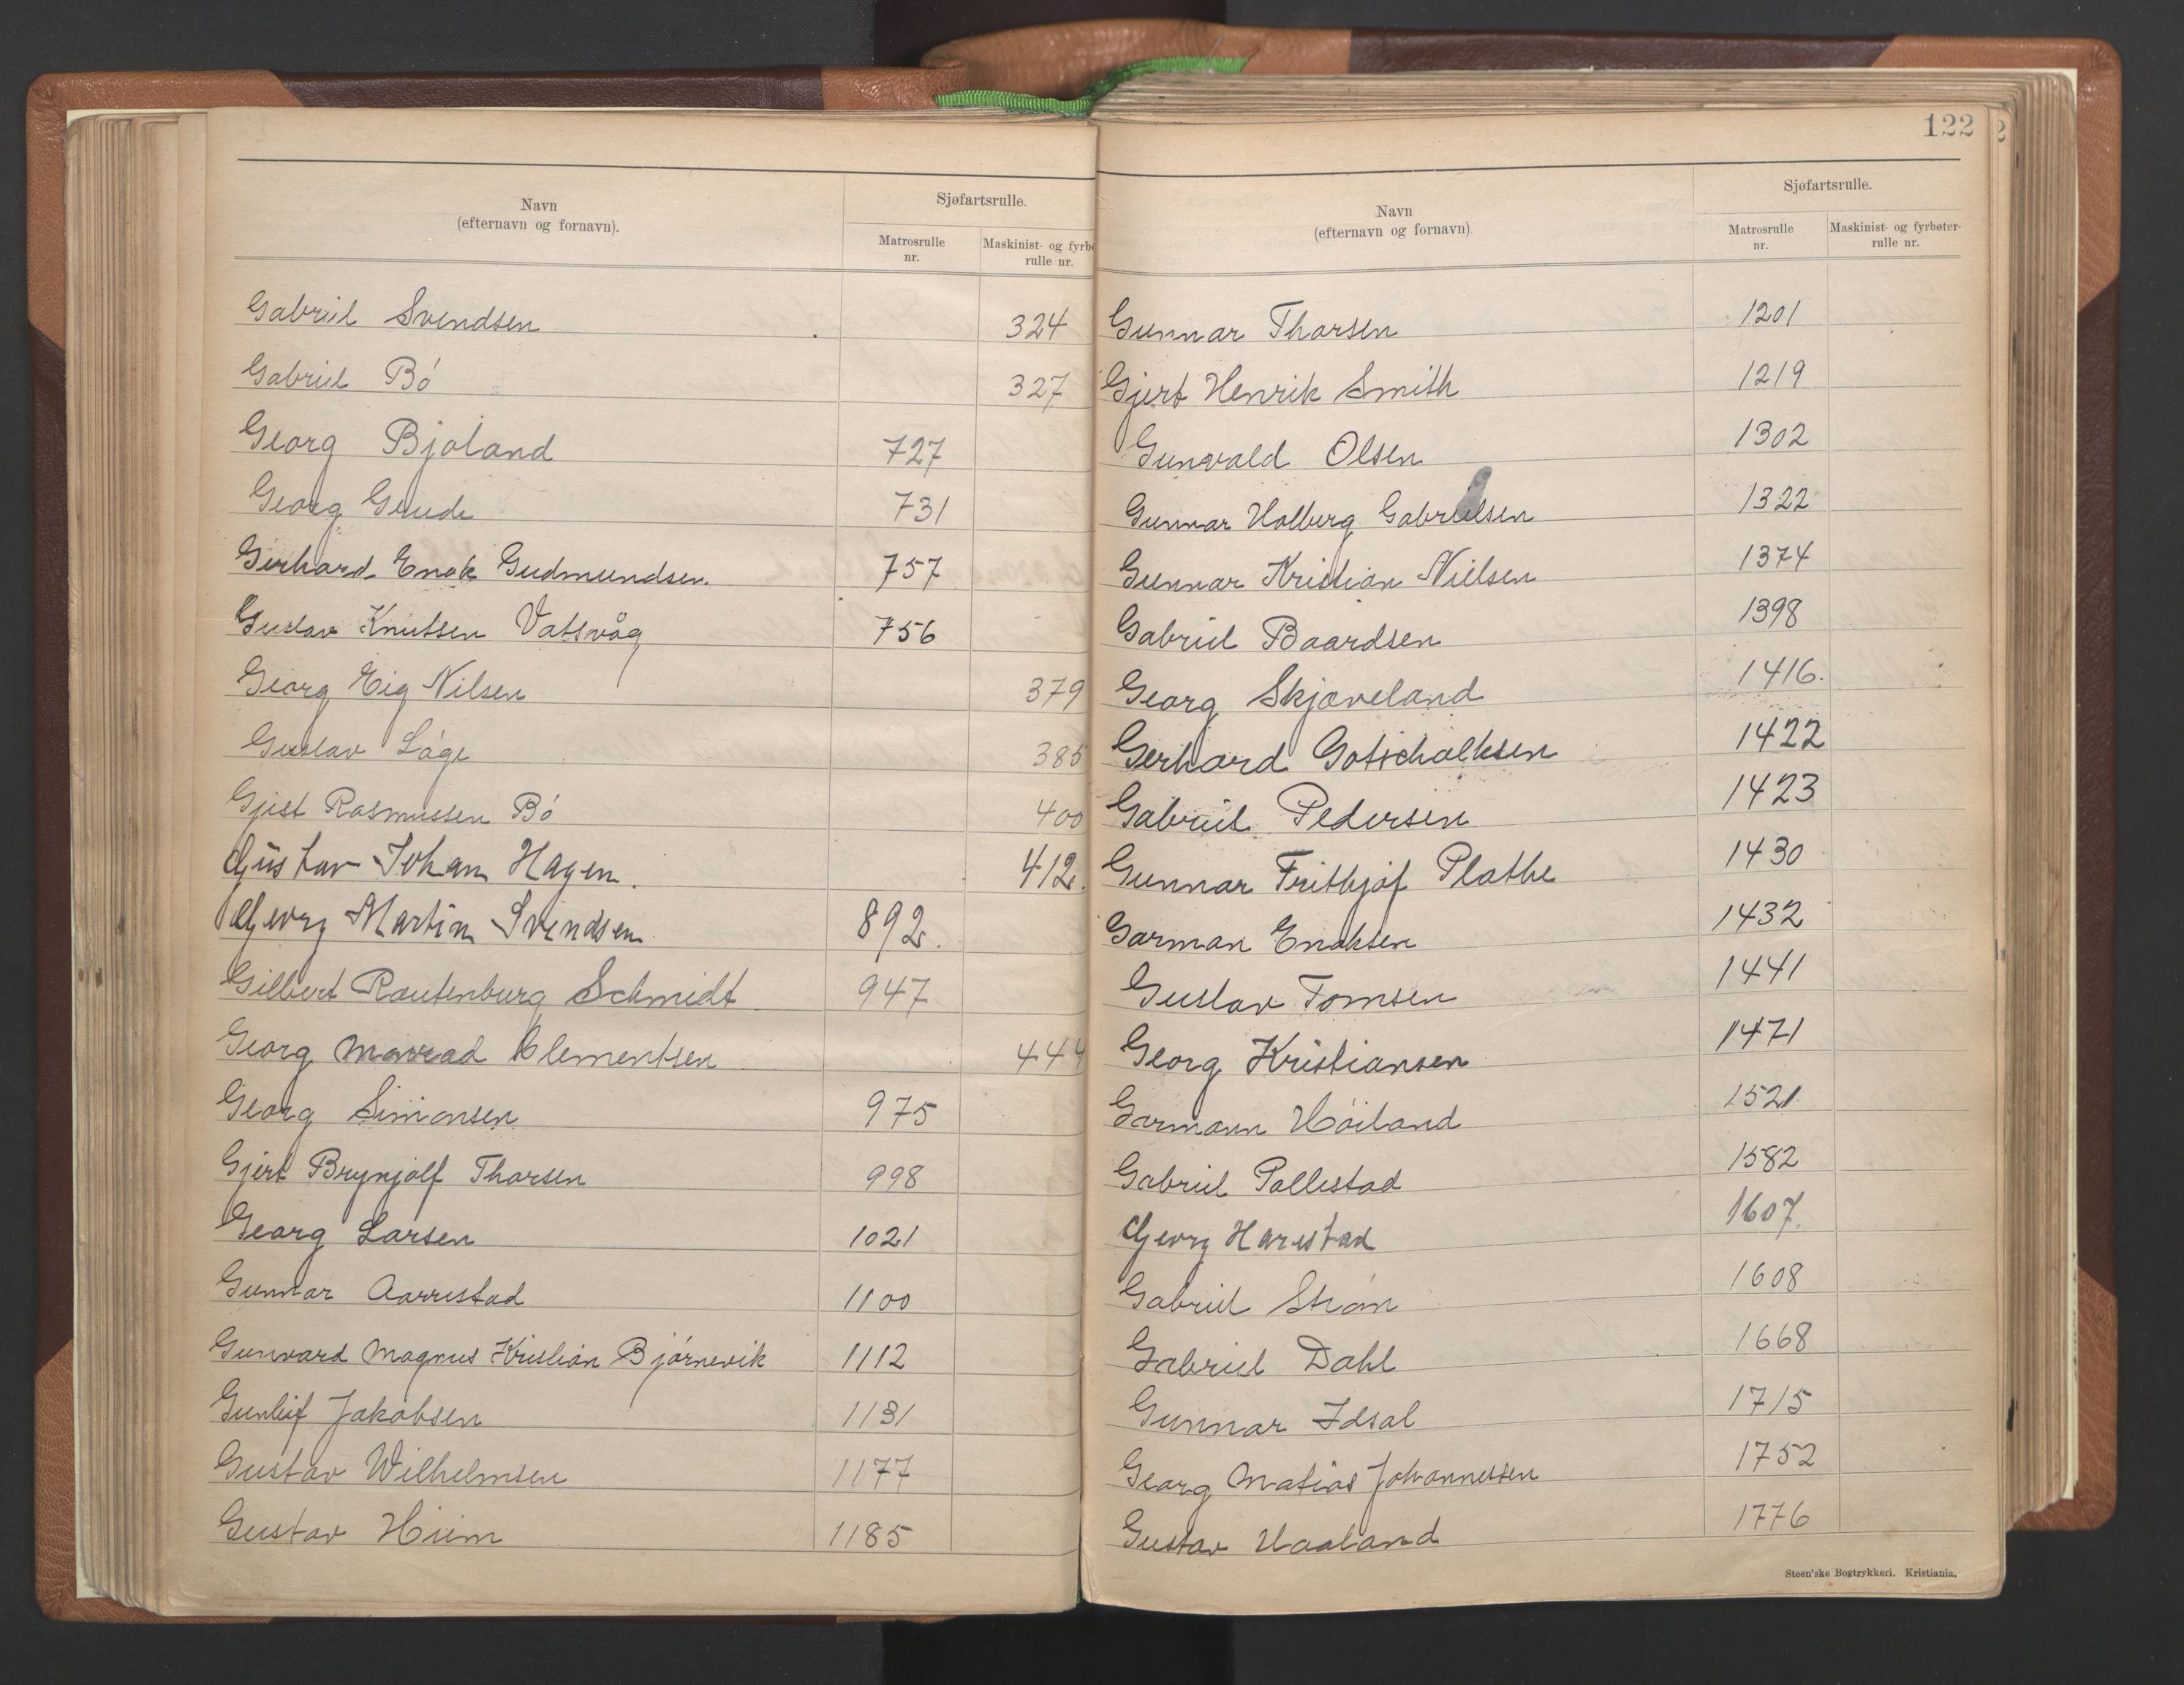 Navn
(efternavn og fornavn).
Sjøfartsrulle.
Matrosrulle
nr.
Maskinist- og fyrbø
rulle nr.
Gabriel Svendsen 324
Gabriel Bö 327
Georg Bjoland 727
Georg Geude 731
Gerhard Enok Gudmundsen 757
Gustav Knutsen Vatsvåg 756
Georg Eig Nilsen 379
Gustav Låge 385
Gjest Rasmussen Bö 400
Gustav Johan Hagen. 412.
Georg Martin Svendsen 892.
Gilbert Rautenburg Schmidt 947
Georg Clementsen 444
Georg Simonsen 975
Gjert Brynjolf Thorsen 998
Georg Larsen 1021
Gunnar Aarrestad 1100
Gunvard Magnus Kristian Bjørnevik 1112
Gunleif Jakobsen 1131
Gustav Wilhelmsen 1177
Gustav Hiim 1185
122
Navn
(efternavn og fornavn).
Sjøfartsrulle.
Matrosrulle
nr.
Maskinist- og fyrbøter-
rulle nr.
Gunnar Thorsen 1201
Gjert Henrik Smith 1219
Gunvald Olsen 1302
Gunnar Holberg Gabrielsen 1322
Gunnar Kristian Nielsen 1374
Gabriel Baardsen 1398
Georg Skjæveland 1416.
Gerhard Gotschalksen 1422
Gabriel Pedersen 1423
Gunnar Frithjof Plathe 1430
Garman Enoksen 1432
Gustav Tomsen 1441
Georg Kristiansen 1471
Garmann Höiland 1521
Gabriel Pallestad 1582
Georg Harestad 1607.
Gabriel Strøm 1608
Gabriel Dahl 1668
Gunnar Idsal 1715
Georg Matias Johannessen 1752
Gustav Haaland 1776
Steen'ske Bogtrykkeri. Kristiania.